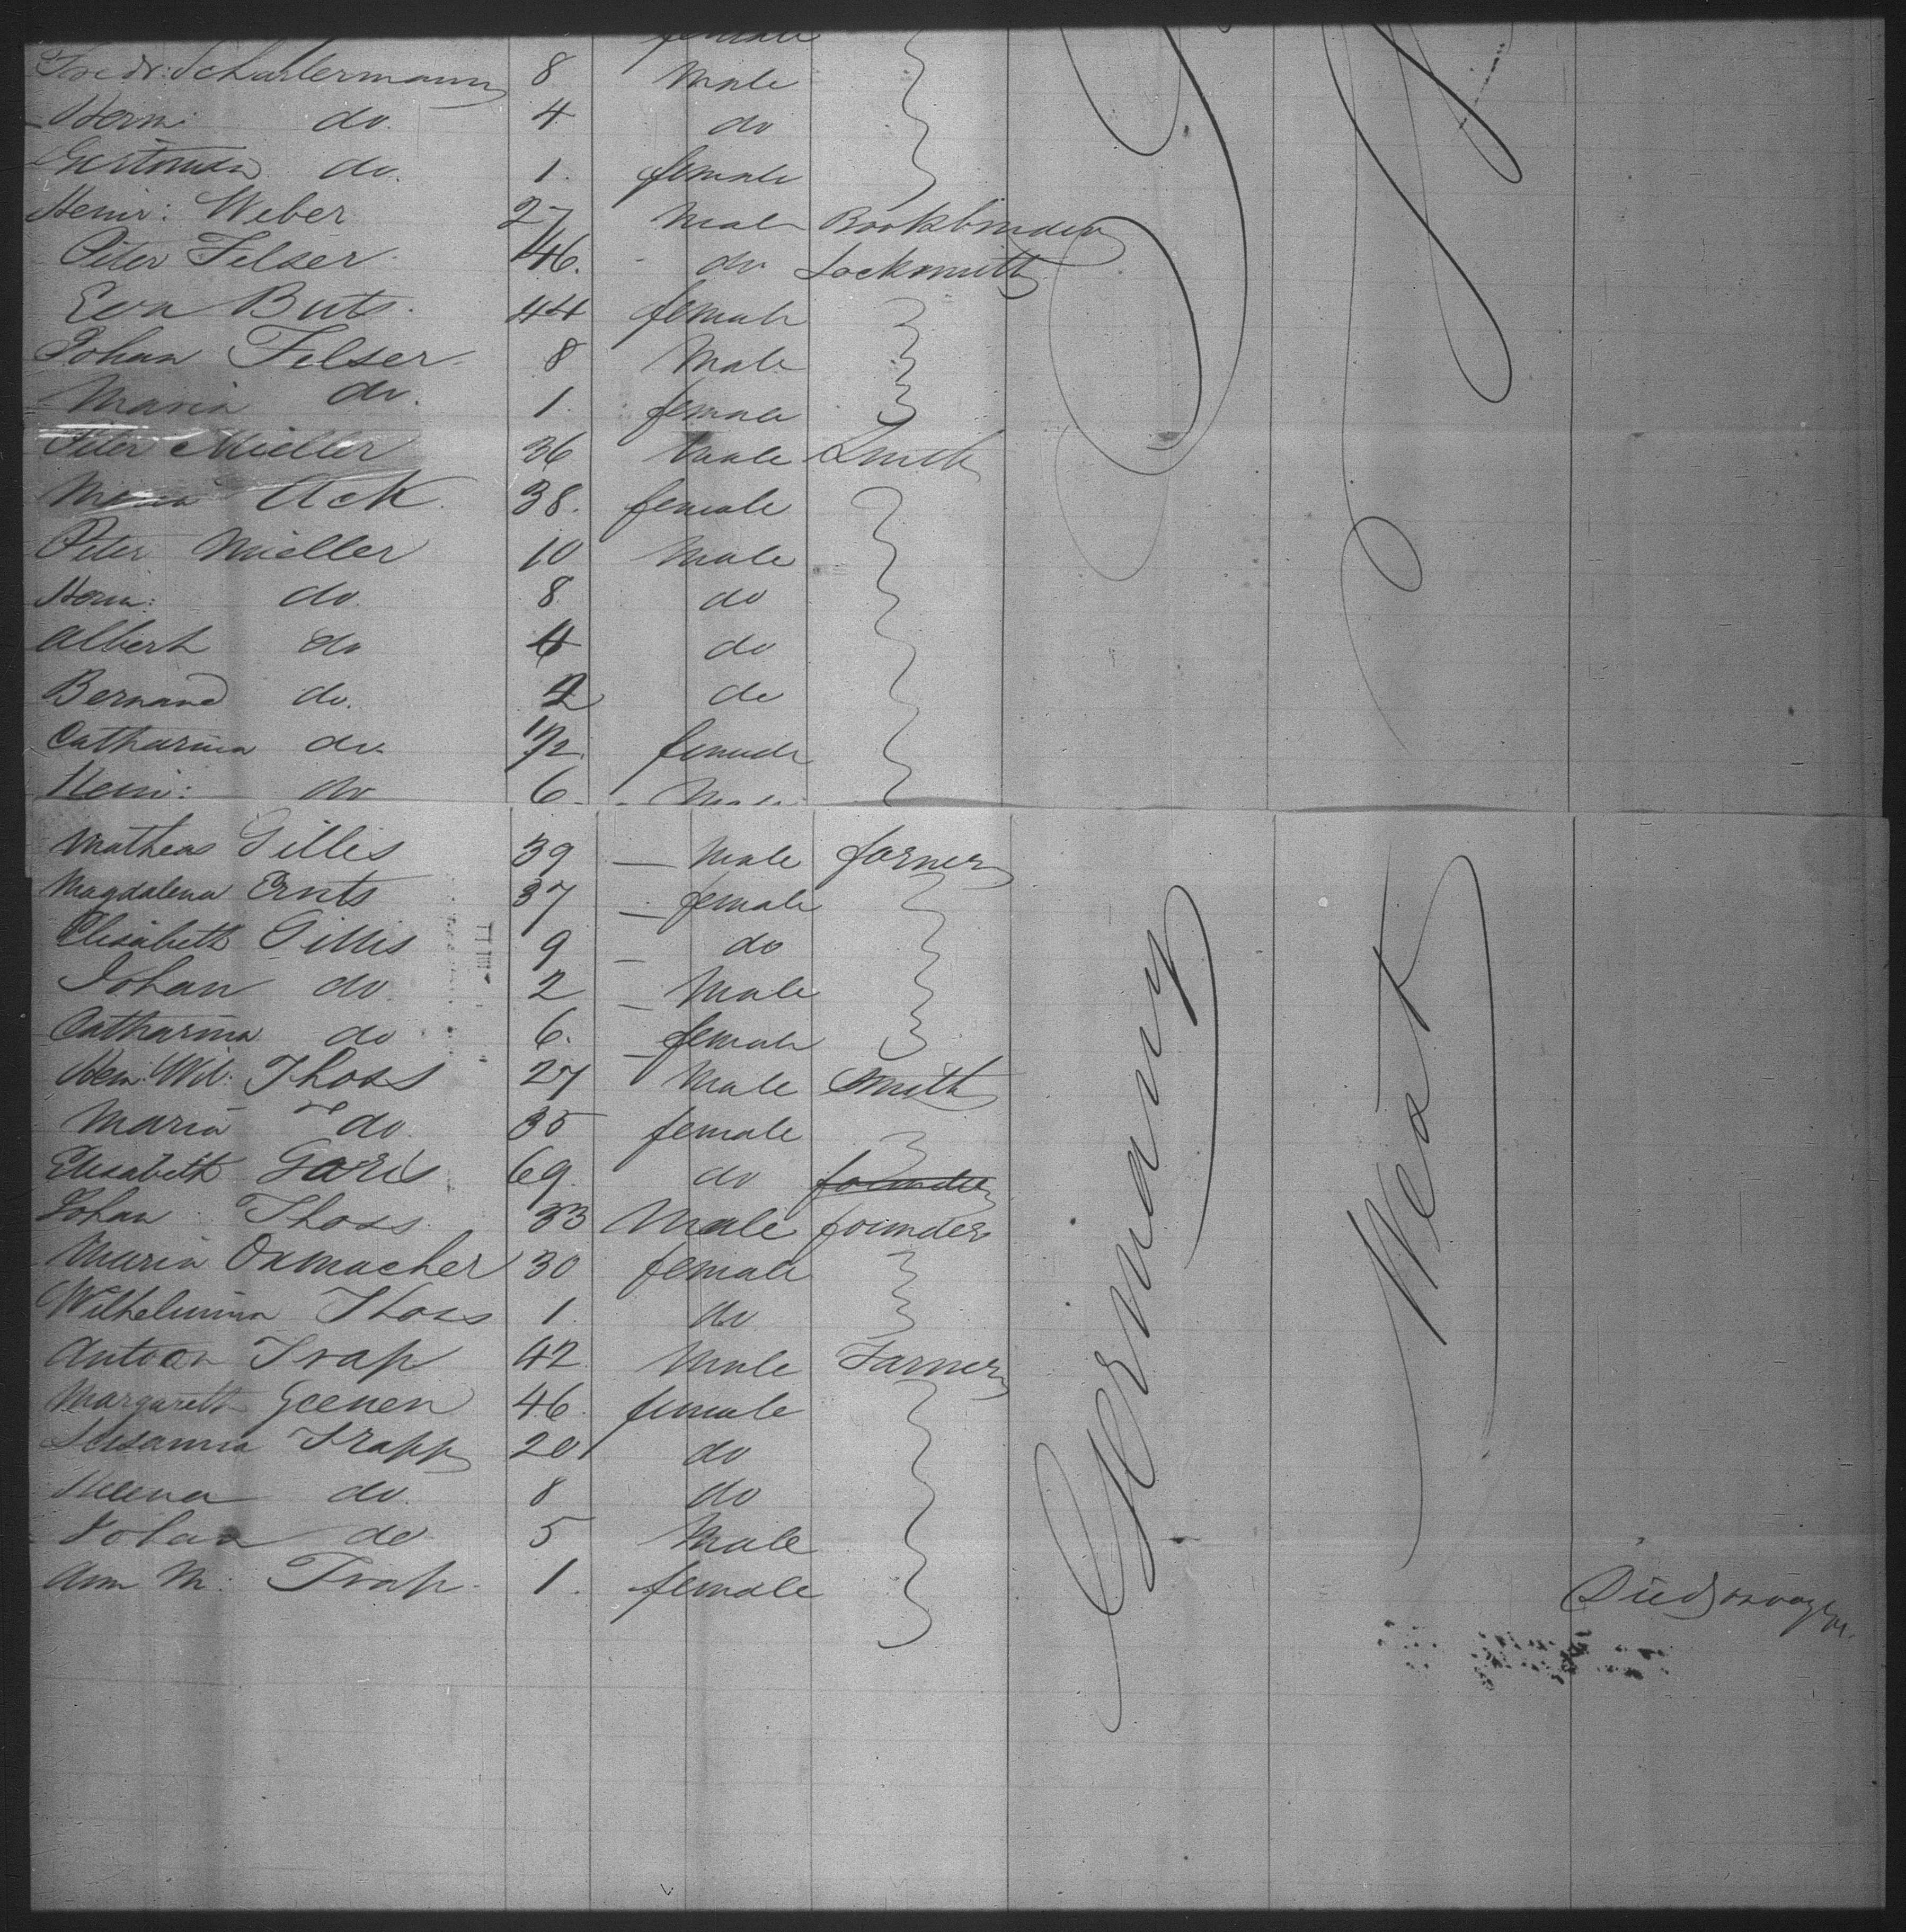 female
Fredr: Scharlermann 8 Male
Herm: do. 4 do
Gertruda do. 1. female
Heinr: Weber 27 Male Bookbinder
Peter Felser 46. do Locksmith
Eva Buts. 44 female
Johan Felser. 8 Male
Maria do. 1. female
Peter Mueller 36 Male Smith
Maria Ack. 38. female
Peter Mueller 10 Male
Herm: do. 8 do
Albert do 4 do
Bernand do. 2 do
Catharina do. 1/2. female
Hein: do 6. Male
Matheas Gillis 39 — Male farner
Magdalena Ernts 37 — female
Elisabeth Gillis 9 — do
Johan do. 2 — Male
Catharina do 6. — female
Hein: Wil: Thoss 27 Male Smith
Maria do. 35 female
Elisabeth Goris 69. do founder
Johan Thoss 33 Male founder
Maria Oxmacher 30 female
Wilhelmina Thoss 1. do
Antoon Trap 42. Male Farner
Margareth Geenen 46. female
Susanna Trapp 20 do
Helena do. 8 do
Johan do 5 Male
Ann M: Trap. 1. female
Germany
West
Died on voyage.